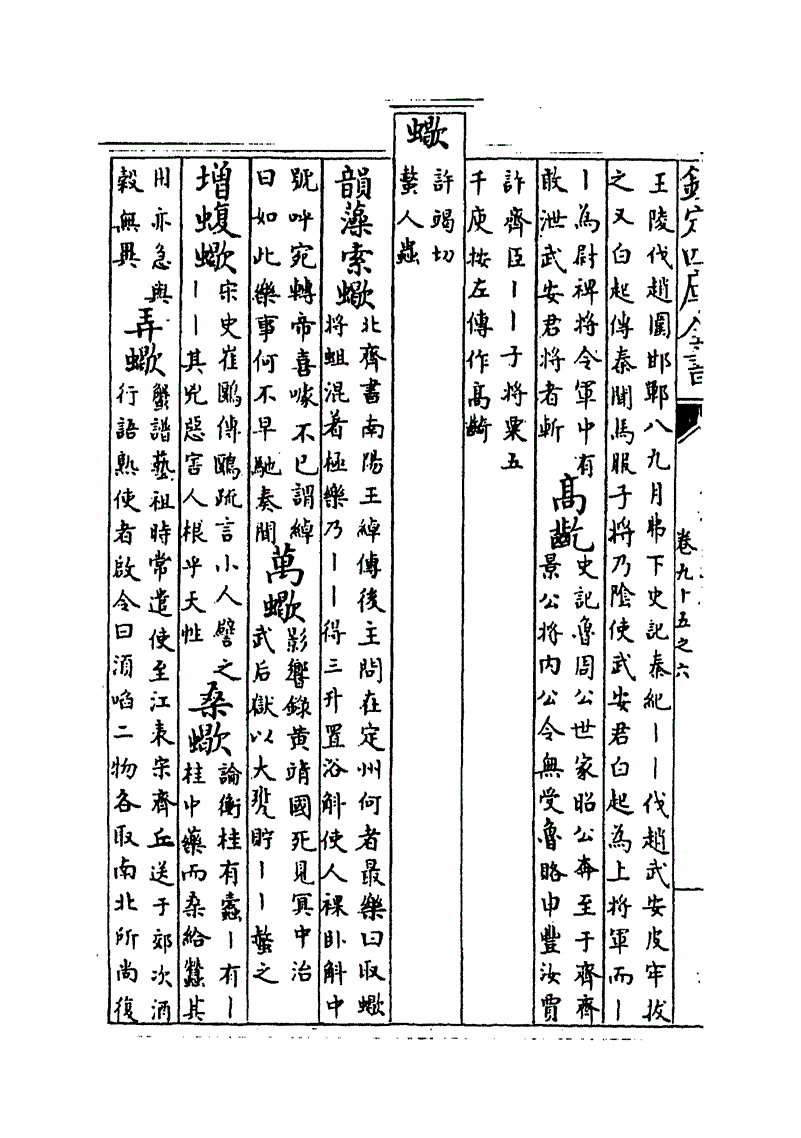 欽定四庫全書
卷九十五之六
王陵伐趙圍邯鄲八九月弗下史記秦紀丨丨伐趙武安皮牢拔
之又白起傳秦聞馬服子將乃隂使武安君白起為上將軍而丨
丨為尉裨將令軍中有
敢泄武安君將者斬
高齕
史記魯周公世家昭公奔至于齊齊
景公將内公令無受魯賂申豐汝賈
許齊臣丨丨子將粟五
千庾按左傳作高齮
蠍
許竭切
螫人蟲
韻藻索蠍
北齊書南陽王綽傳後主問在定州何者最樂曰取蠍
將蛆混着極樂乃丨丨得三升置浴斛使人裸卧斛中
號呼宛轉帝喜噱不已謂綽
曰如此樂事何不早馳奏聞
萬蠍
影響錄黄靖國死見冥中治
武后獄以大甖貯丨丨螫之
增蝮蠍
宋史崔鶠傳鶠疏言小人譬之
丨丨其兇惡害人根乎天性
桑蠍
論衡桂有蠹丨有丨
桂中藥而桑給蠶其
用亦急與
穀無異
弄蠍
蟹譜藝祖時常遣使至江表宋齊丘送于郊次酒
行語熟使者啟令曰須啗二物各取南北所尚復